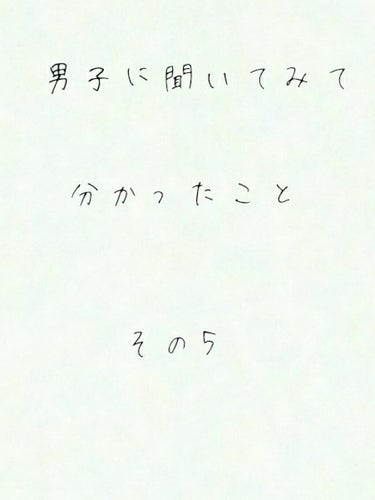 男子に聞いてみて
分かったこと
その5